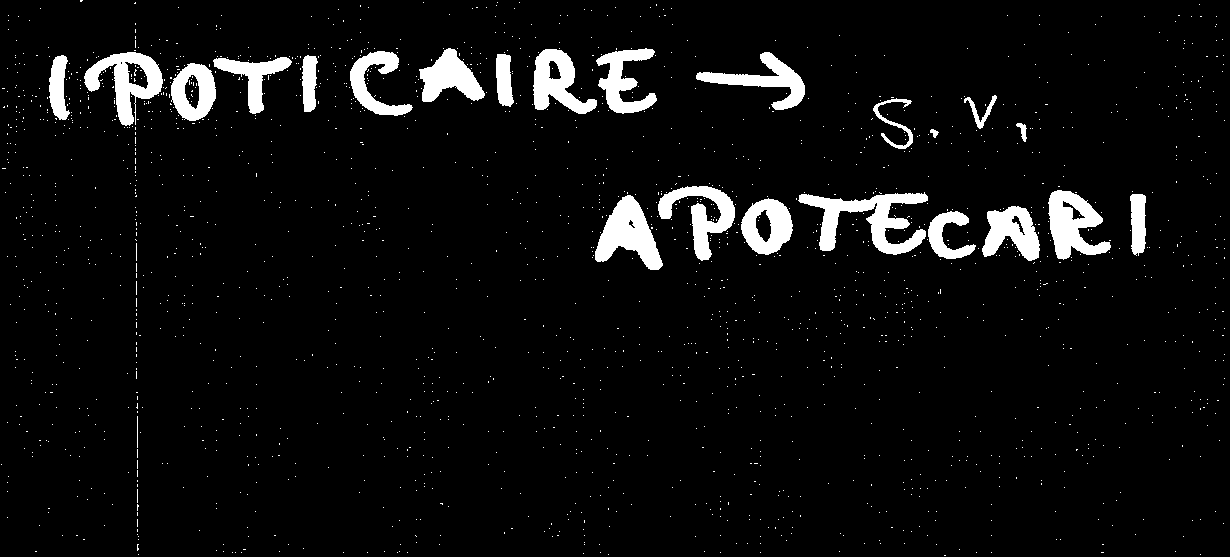 IPOTICAIRE →
s.v.
APOTECARI